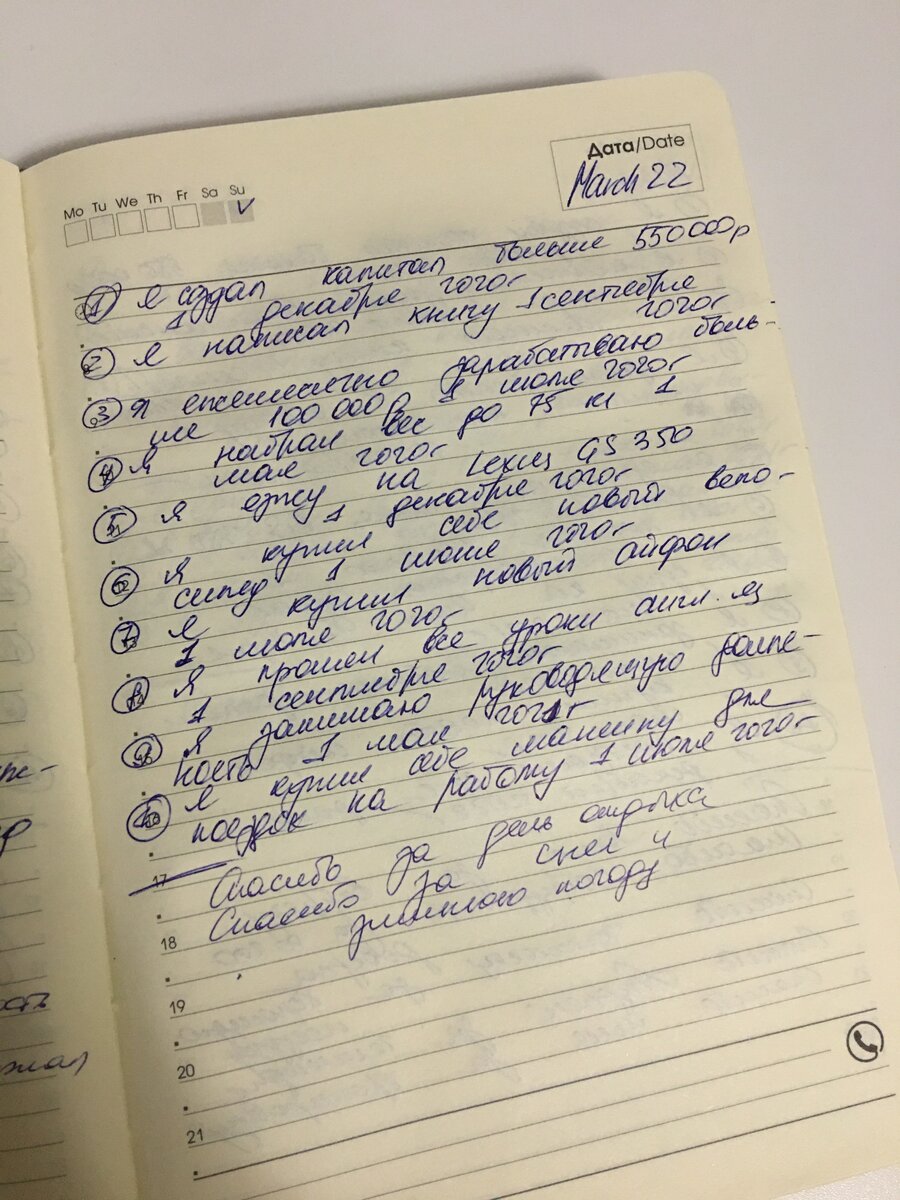 Mo Tu We Th Fr Sa Su
Дата/Date
March 22
1 Я создал капитал больше 550000р
1 декабря 2020г
2 Я написал книгу 1 сентября
2020г
3 Я ежемесячно зарабатываю боль-
ше 100 000р 1 июля 2020г
4 Я набрал вес до 75 кг 1
мая 2020г
5 Я езжу на Lexus GS 350
1 декабря 2020г
6 Я купил себе новый вело-
сипед 1 июня 2020г
7 Я купил новый айфон
1 июля 2020г
8 Я прошел все уроки англ. яз
1 сентября 2020г
9 Я занимаю руководящую долж-
ность 1 мая 2021г
10 Я купил себе машину для
поездок на работу 1 июля 2020г
17 Спасибо за день отдыха
Спасибо за снег и
18 зимнюю погоду
19
20
21